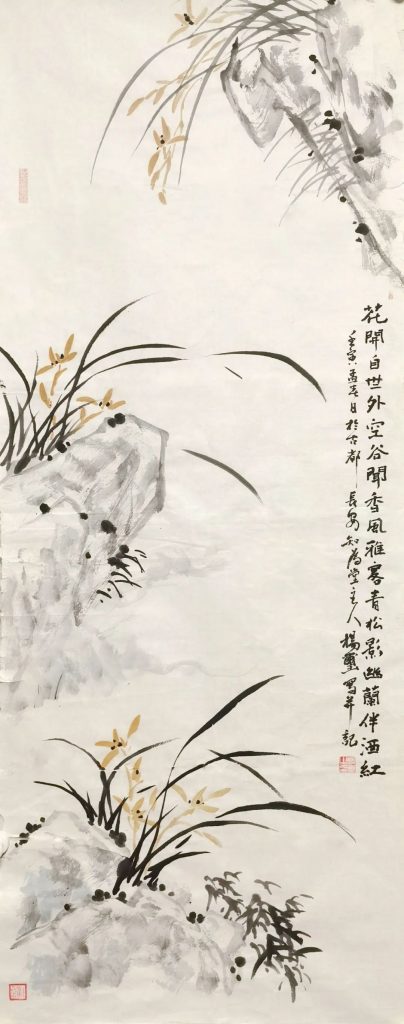 花開自世外空谷聞香風雅客青松影幽蘭伴酒紅
壬寅孟春月於古都長安知為堂主人楊璽寫并記